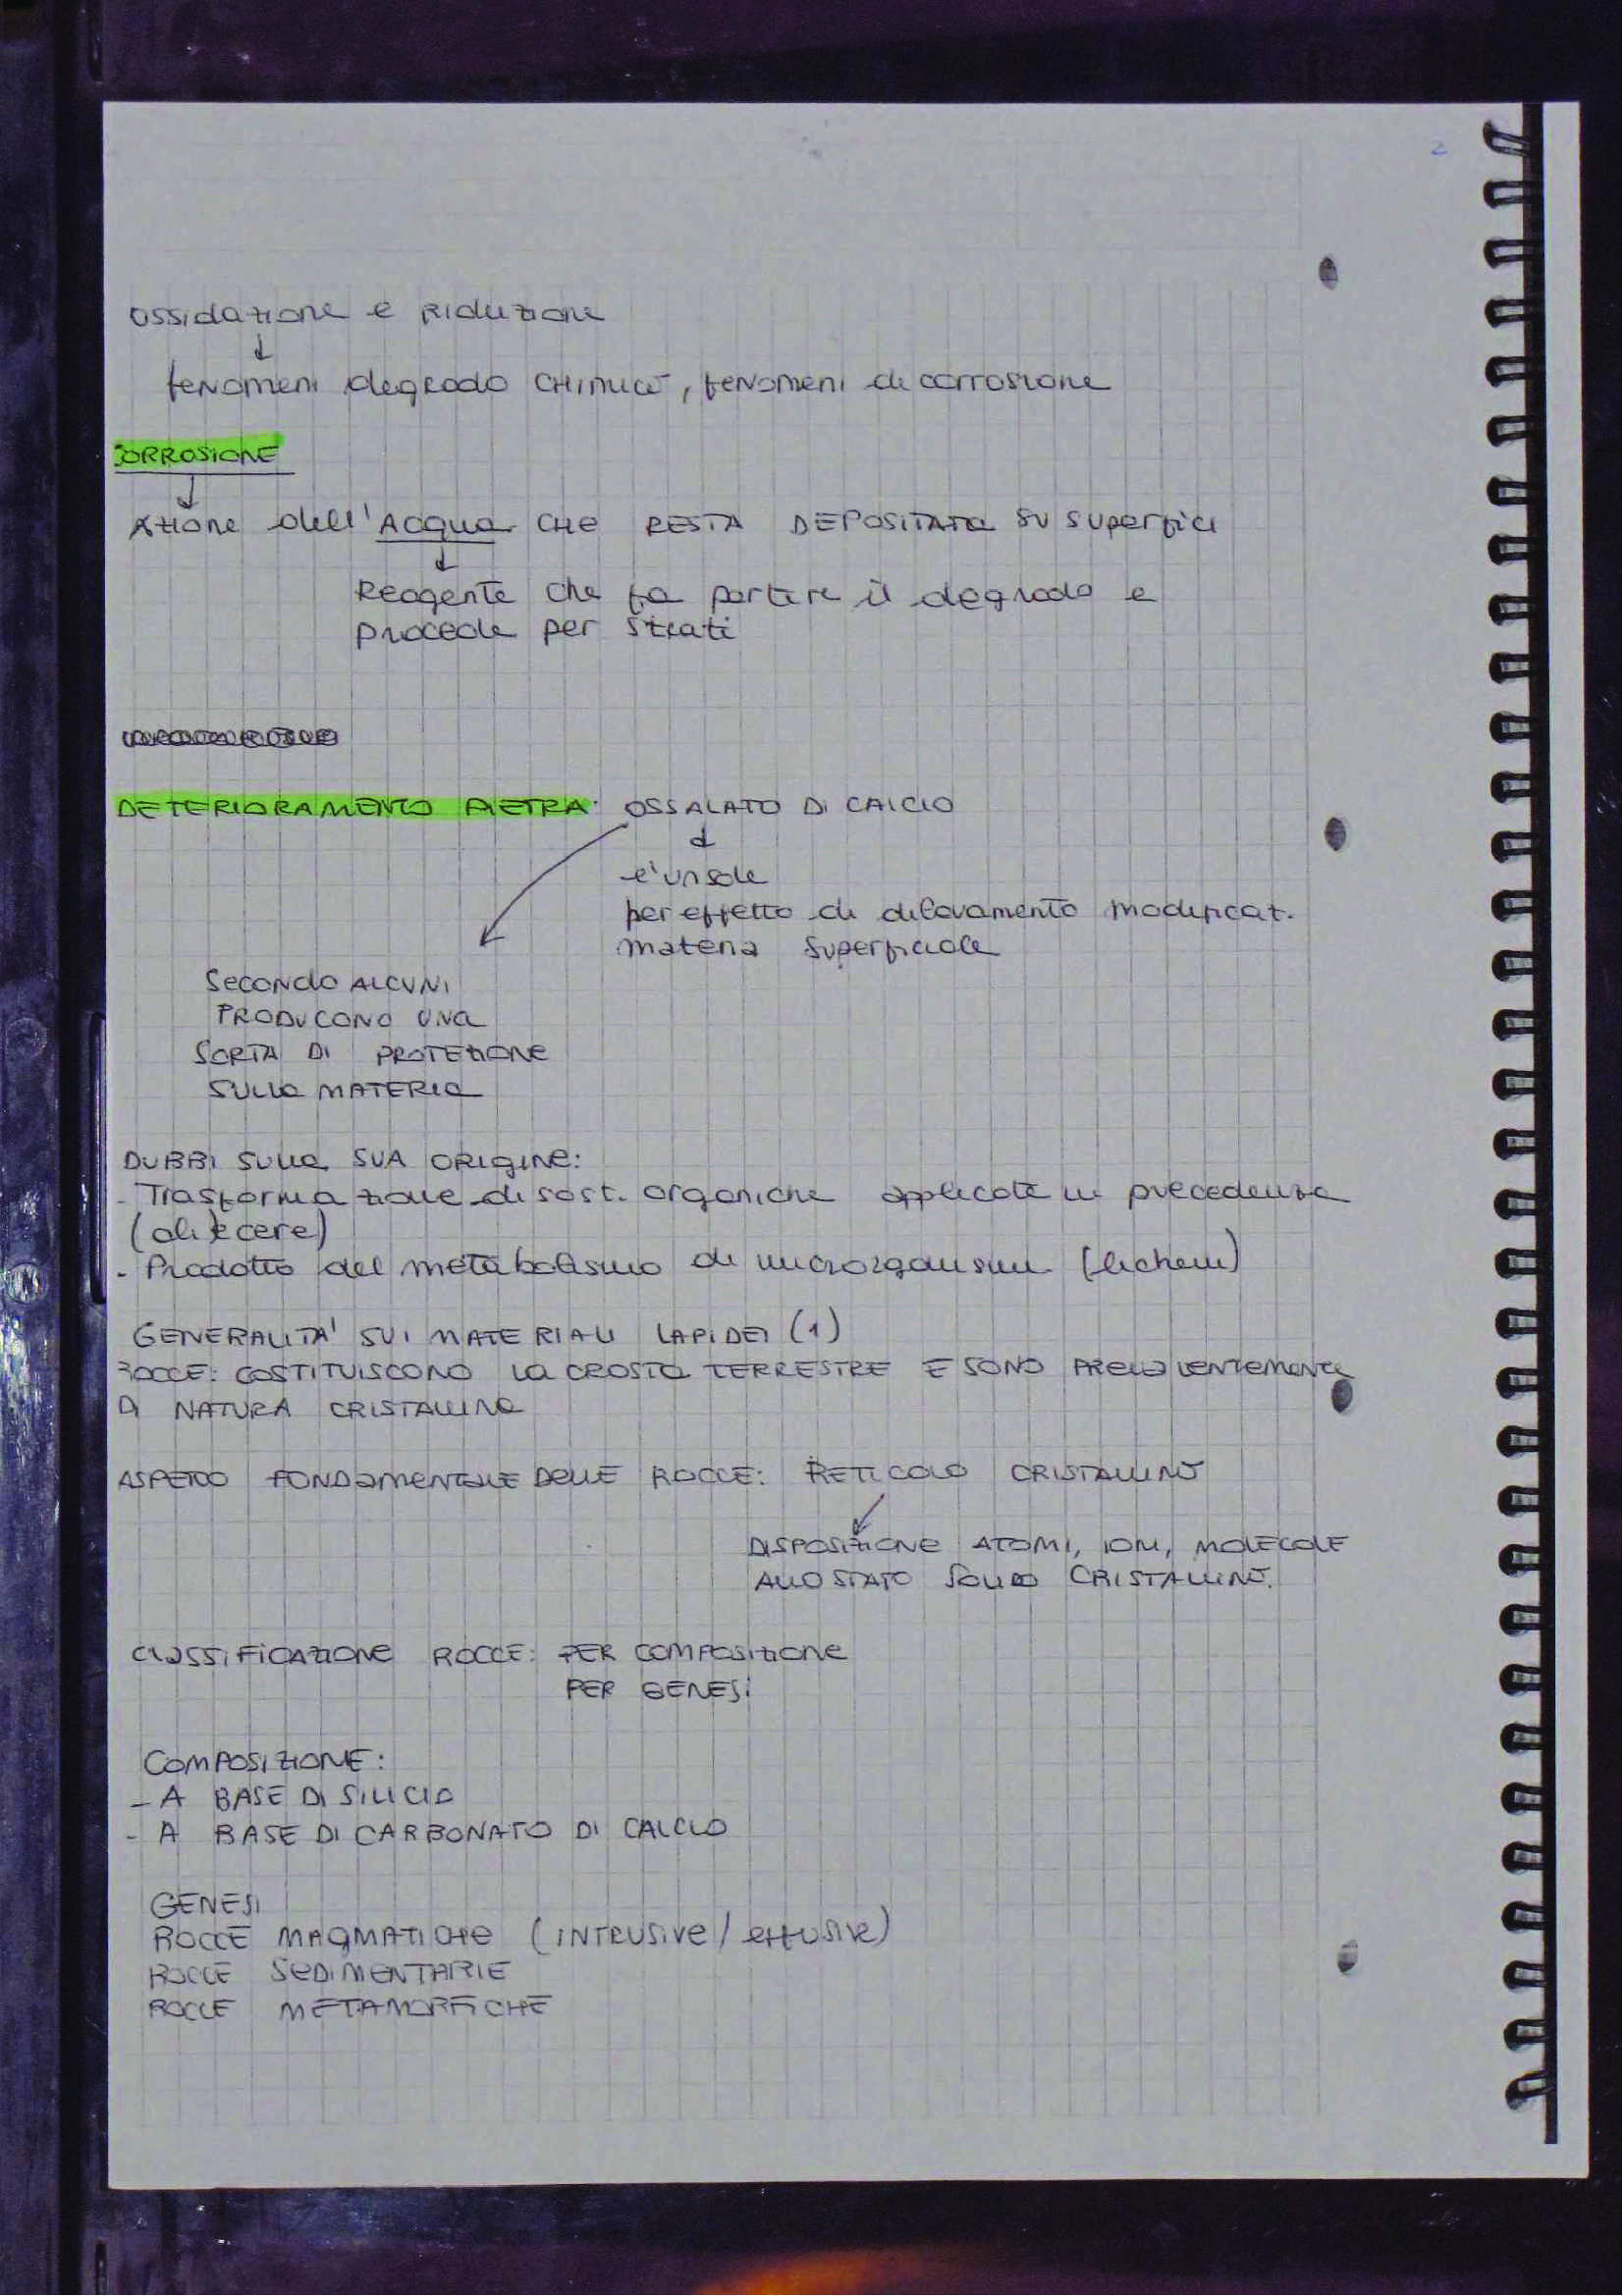 2
Ossidazione e Riduzione
↓
fenomeni degrado chimico, fenomeni di corrosione
CORROSIONE
↓
Azione dell'Acqua CHE RESTA DEPOSITATA SU superfici
↓
Reagente che fa partire il degrado e
procede per strati
DETERIORAMENTO PIETRA: OSSALATO DI CALCIO
↓
e' un sale
per effetto di dilavamento modificaz.
materia superficiale
Secondo ALCUNI
PRODUCONO UNA
SORTA DI PROTEZIONE
SULLA MATERIA
DUBBI SULLA SUA ORIGINE:
- Trasformazione di sost. organiche applicate in precedenza
(oli e cere)
- Prodotto del metabolismo di microrganismi (licheni)
GENERALITA' SUI MATERIALI LAPIDEI (1)
ROCCE: COSTITUISCONO LA CROSTA TERRESTRE E SONO PREVALENTEMENTE
DI NATURA CRISTALLINA
ASPETTO FONDAMENTALE DELLE ROCCE: RETICOLO CRISTALLINO
DISPOSIZIONE ATOMI, IONI, MOLECOLE
ALLO STATO SOLIDO CRISTALLINO.
CLASSIFICAZIONE ROCCE: PER COMPOSIZIONE
PER GENESI
COMPOSIZIONE:
- A BASE DI SILICIO
- A BASE DI CARBONATO DI CALCIO
GENESI
ROCCE MAGMATICHE (INTRUSIVE / effusive)
ROCCE SEDIMENTARIE
ROCCE METAMORFICHE